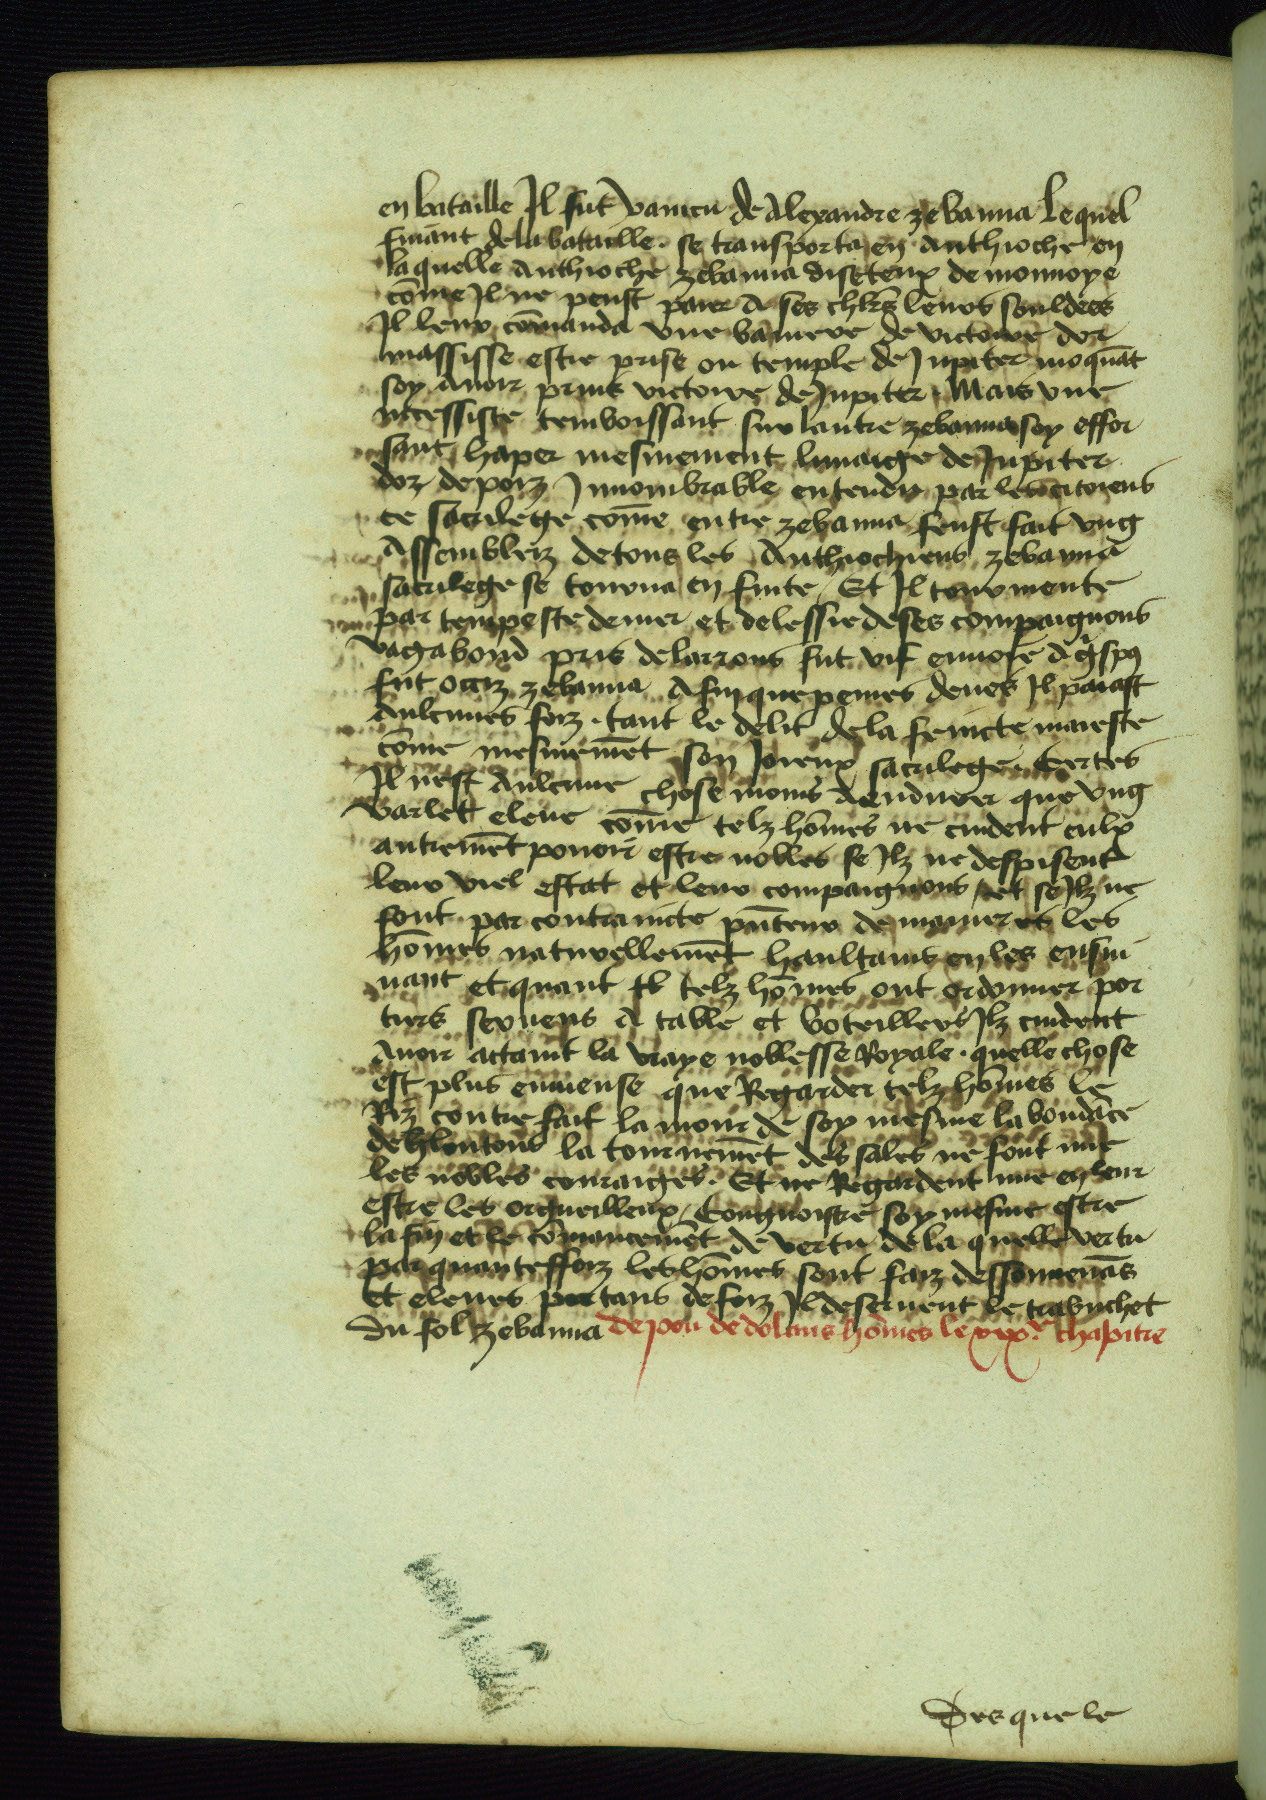 en bataille Il fut vaincu de Alexandre zebanna Lequel
finant de la bataille. se transporta en Anthioche en
laquelle Anthioche zebanna diseteux de monnoye
cōme Il ne peust paier A ses chl̄rs leurs souldees
Il leur cōmanda vne baniere de victoire dor
massisse estre prise ou temple de Jupiter moquāt
soy Auoir prins victoire de Jupiter. Mais vne
necessiste sur lautre zebanna soy effor
sant haper mesmement lymaige de Jupiter
dor de pois Innombrable entendu par les citoiens
ce sacrilege come entre zebanna feust fait vng
Assemblez de tous les Anthiochiens zebanna
sacrilege se tourna en fuite / Et Il tourmente
par tempeste de mer et delessie de ses compaignons
vagabond pris de larrons fut vif enuoie
fut occiz zebanna A fin que peines deues Il paiast
Aulcunes foiz. tant le delit de la maieste
cōme mesmemēt son Joieux sacrilege. Certes
Il nest Aulcune chose moins A endurer que vng
varlet eleue cōme telz hōmes ne cuident eulx
autremēt pouoir estre nobles se Ilz ne despisent
leur viel estat et leur compaignons / et se Ilz ne
font par contraincte de manieres les
hōmes naturellemēt haultains en les ensui
uant et quant telz hōmes ont ordonner por
tiers seruens A table et boteilliers Ilz cuident
Auoir attaint la vraye noblesse Royale. quelle chose
est plus enuieuse que Regarder telz hōmes le
Riz contre fait lamour de soy mesme labondāce
de gloutons la tournemēt des sales ne font mie
les nobles couraiges. Et ne Regardent mie en leur
estre les orgueilleux / Congnoistre soy mesme estre
la fin et le cōmancement de vertu de la quelle vertu
par quant effoiz les hōmes sont faiz dessouuenās
Et eleues par tans de foiz Il deseruent le trabuchet
Du fol zebanna de peu de dolans hōmes le xixe. chapitre
Des que le